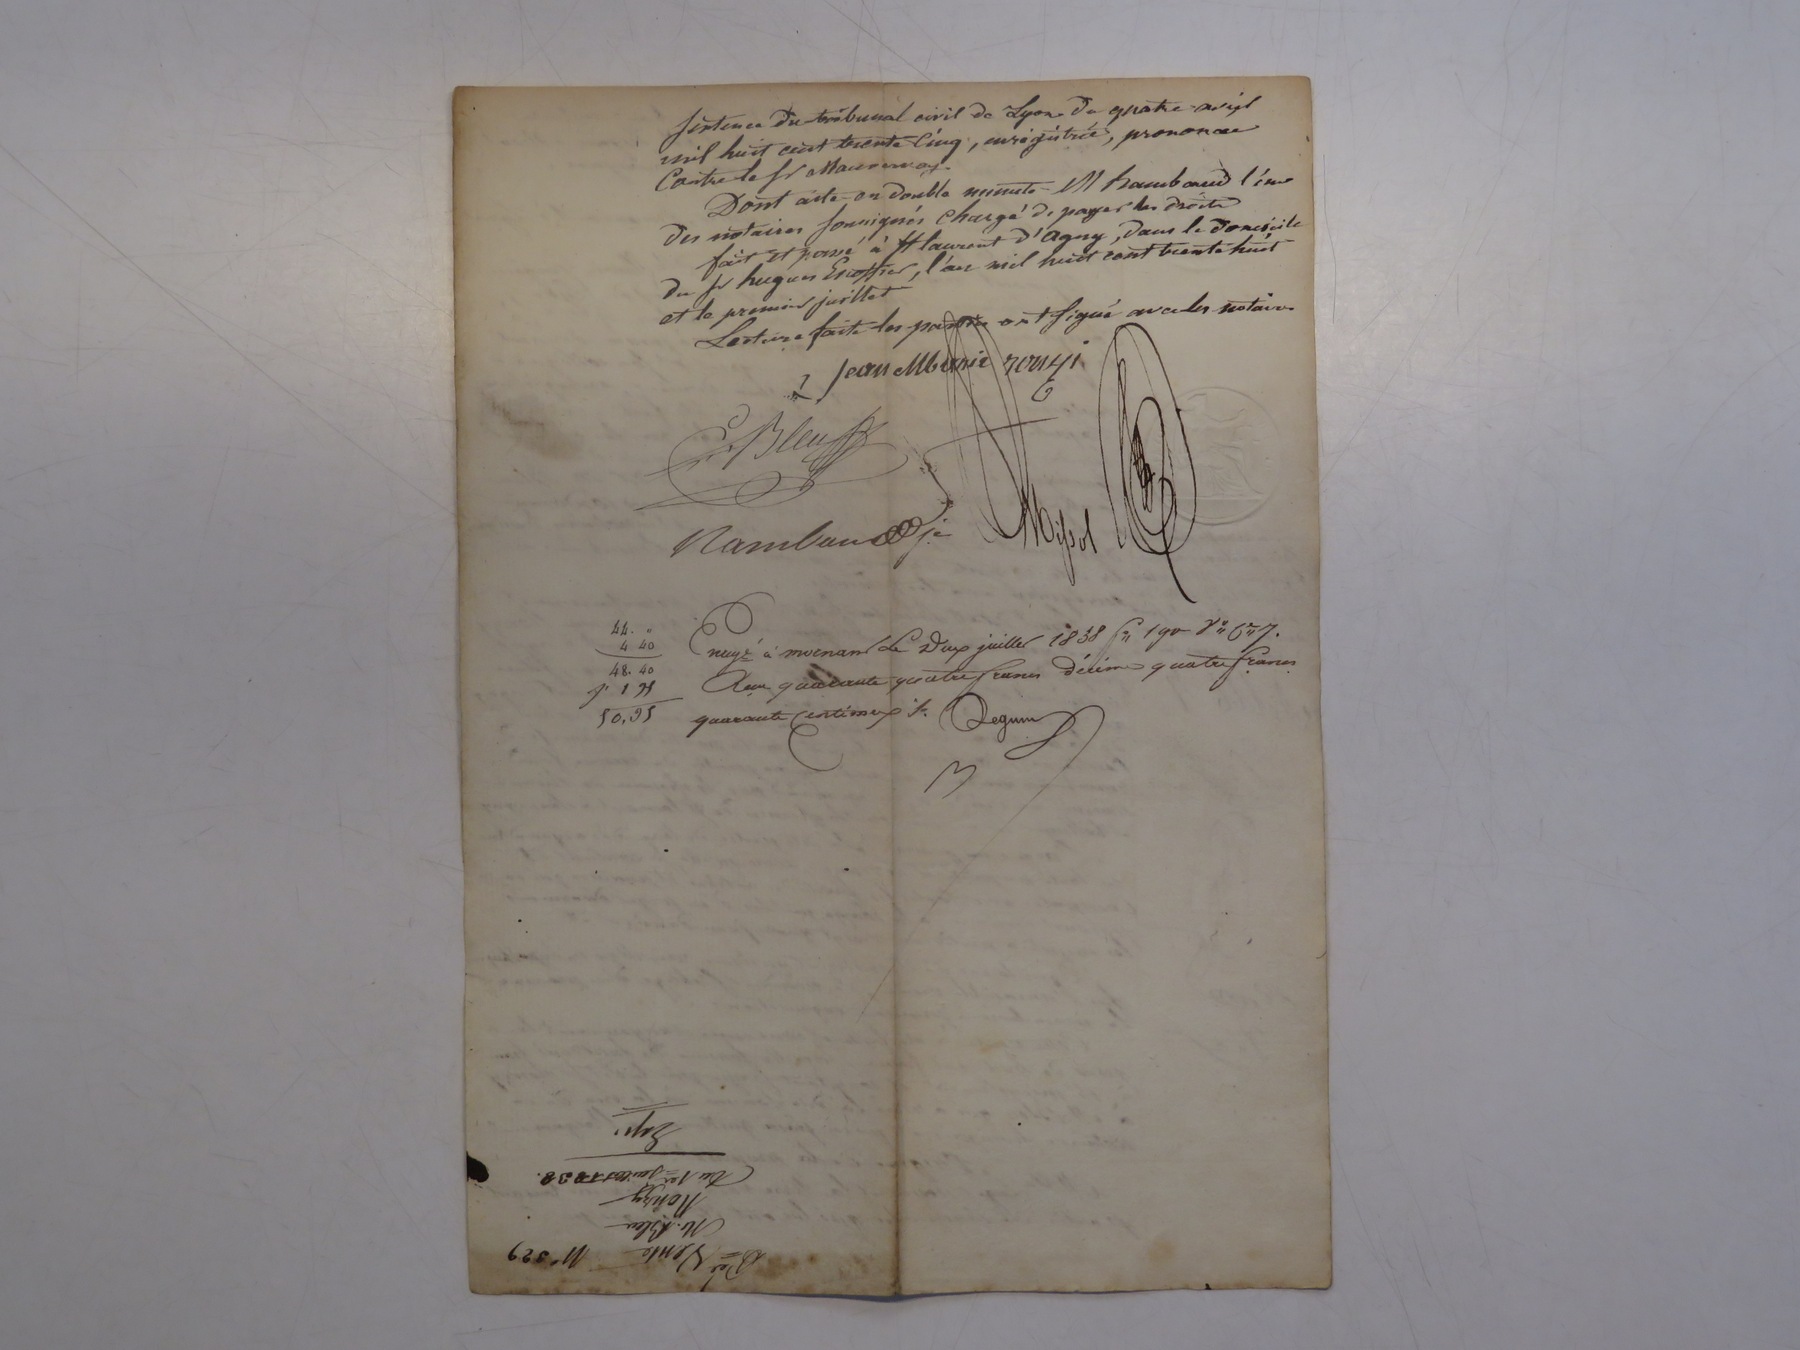 sentence du tribunal civil de Lyon du quatre avril
mil huit cent trente cinq, enregistrée, prononcée
Contre le sr
Dont acte en double minute M Rambaud l'un
des notaires soussignés chargé de payer les droits
fait et passé à St laurent d'Agny, dans le domicile
du sr hugues Escoffier, l'an mil huit cent trente huit
et le premier juillet
Lecture faite les parties ont signé avec les notaires
Jean Marie rougi
Bleu
Rambaud
44. "
4 40
48. 40
50,95
Enregé à mornant Le Deux juillet 1838 fo 190
Reçu quarante quatre francs décime quatre francs
quarante centimes
Vente N° 329
M. Bleu
Rougy
Du 1er juillet 1838.
Exp.